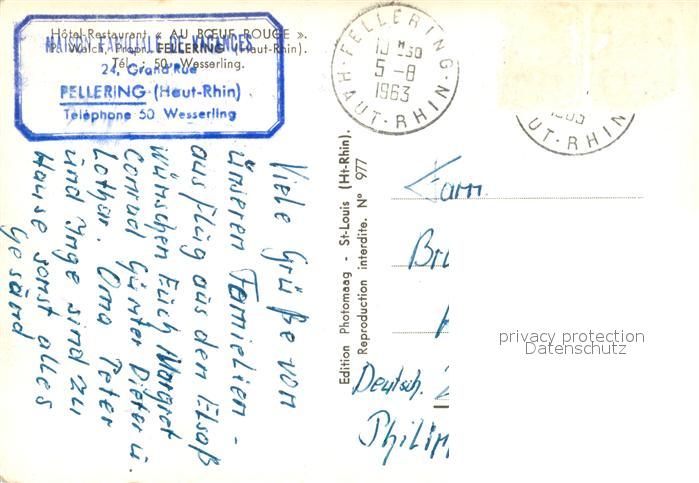 Hôtel-Restaurant « AU BŒUF ROUGE ».
P. Walch, Propr. FELLERING (Haut-Rhin).
Tél. : 50, Wesserling.
MAISON FAMILIALE DE VACANCES
24, Grand'Rue
FELLERING (Haut-Rhin)
Téléphone 50 Wesserling
FELLERING
10 H 30
5-8
1963
HAUT-RHIN
1963
UT-RHIN
Viele Grüße von
ünserem Familien-
ausflüg aus dem Elsaß
wünschen Eüch Margret
Conrad Günter Dieter ü.
Lothar. Oma Peter
ünd Inge sind zü
Hause sonst alles
gesünd
Edition Photomaag - St-Louis (Ht-Rhin).
Reproduction interdite. N° 977
Fam.
Br
Deutsch.
Philip
privacy protection
Datenschutz